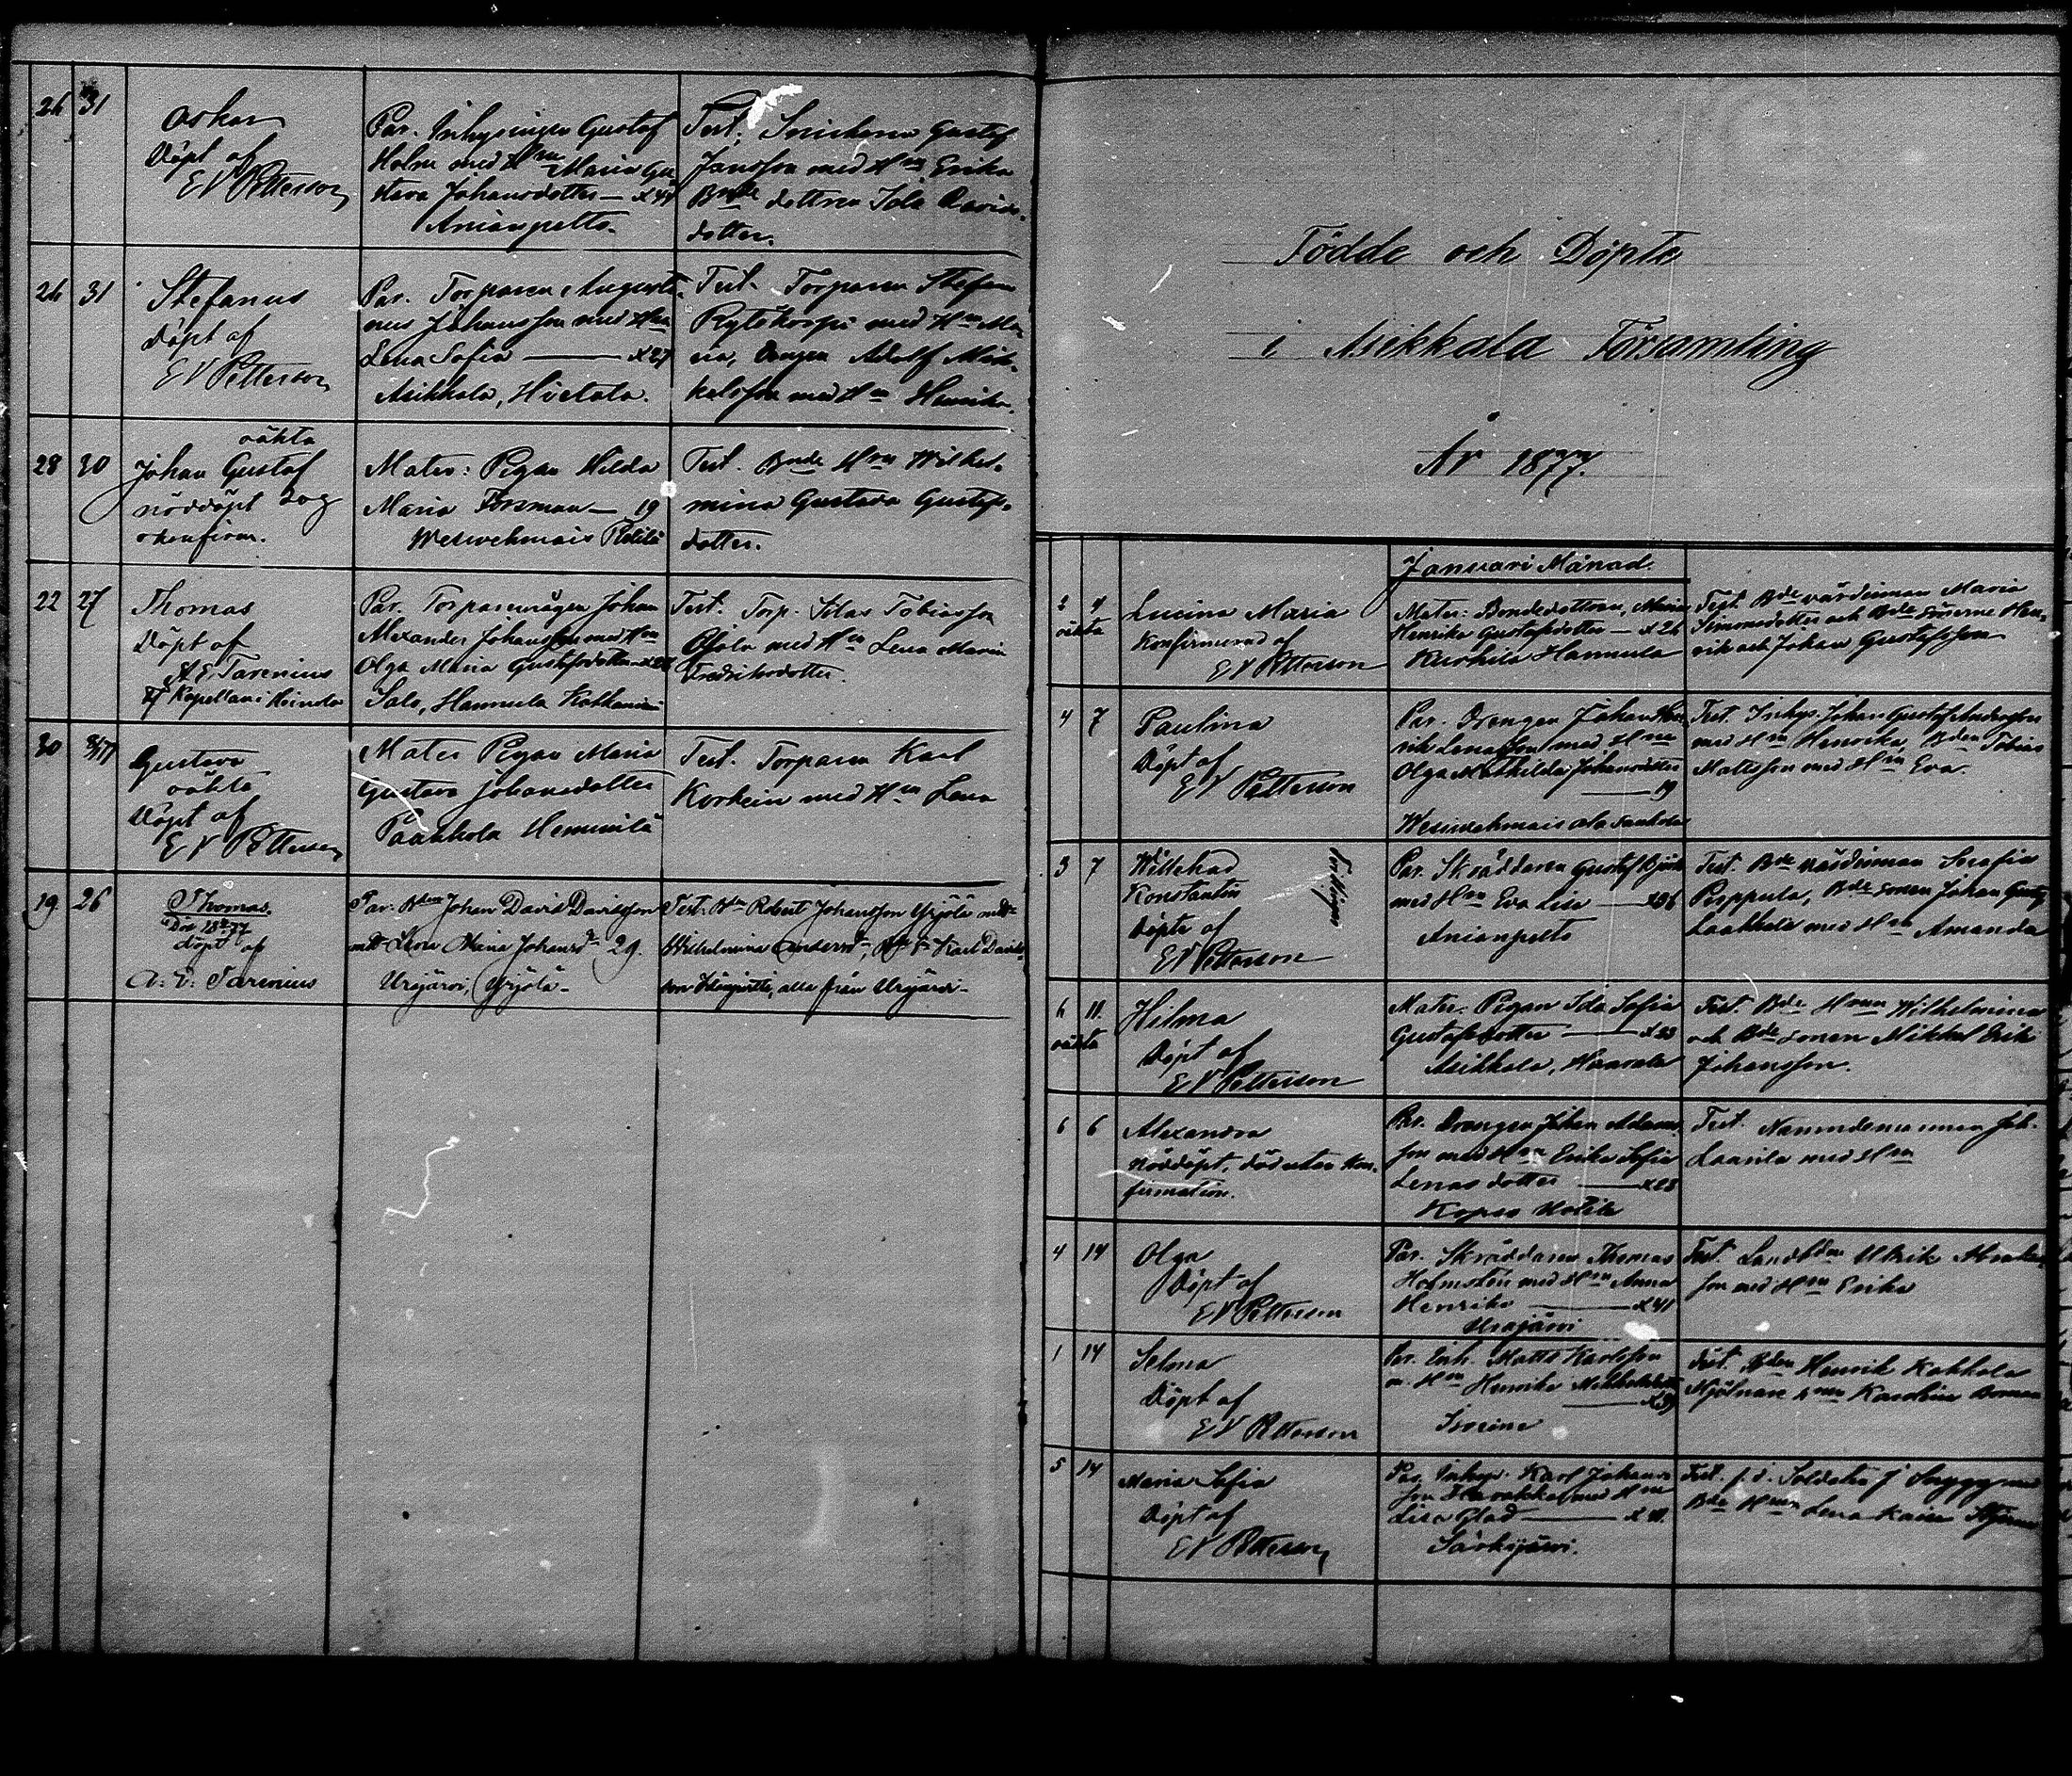 26 31
Oskar
Döpt af
EV Petterson
Par. Inhysingen Gustaf
Holm med Hru Maria Gu
stava Johansdotter — x 44
Anianpelto.
Test. Snickaren Gustaf
Jansson med Hru Erika
Bnde dottren Ida Davids-
dotter.
26 31
Stefanus
Döpt af
EV Petterson
Par. Torparen August
Johansson med Hru
Lena Sofia — x 27
Asikkala, Hietala.
Test. Torparen Stefan
Rytökorpi med Hru Ma
ria, Drengen Adolf Mik-
kelsson med Hru Henrika.
28 30
oäkta
Johan Gustaf
nöddöpt dog
okonfirm.
Mater: Pigan Hilda
Maria Forsman — 19
Wesivehmais
Test. Bnde Hru Wilhel-
mina Gustava Gustafs-
dotter.
22 27
Thomas
Döpt af
A E Tarenius
Kapellan i Heinola
Par. Torparemågen Johan
Alexander Johansson med Hru
Olga Maria Gustafsdotter
Salo, Hannula
Test. Torp. Silas Tobiasson
Ojala med Hru Lena Maria
Fredriksdotter.
30
Gustava
oäkta
Döpt af
EV Petterson
Mater Pigan Maria
Gustava Johansdotter
Paakkola Heinilä
Test. Torparen Karl
Korhein med Hru Lena
19 26
Thomas.
Döpt af
A. E. Tarenius
Par. Bden Johan David Davidsson
med Maria Johansdr 29.
Urajärvi, Yrjölä
Test. Bdn Robert Johansson Yrjölä med
Wilhelmina Andersdr, Karl Davids-
son alla från Urajärvi
Födde och Döpte
i Asikkala Församling
År 1877.
Januari Månad.
2 4
oäkta
Lucina Maria
Konfirmerad af
EV Petterson
Mater: Bondedottren, Maria
Henrika Gustafsdotter — x 26
Kurhila Hannula
Test. Bde värdinnan Maria
Simonsdotter och Bde sönerne Hen-
rik och Johan Gustafsson
4 7
Paulina
Döpt af
EV Petterson
Par. Drengen Johan Hen
rik Lenasson med Hru
Olga Mathilda Johansdotter
— 19
Wesivehmais
Test. Inhys. Johan Gustaf Andersson
med Hru Henrika, Bden Tobias
Mattsson med Hru Eva.
3 7
Willehad
Konstantin
Döpt af
EV Petterson
Par. Skräddaren Gustaf Björk
med Hru Eva Lisa — x36
Anianpelto
Test. Bde värdinnan Serafia
Peppula, Bde sonen Johan Gust
Laakkola med Hru Amanda
6 11.
oäkta
Hilma
Döpt af
EV Petterson
Mater. Pigan Ida Sofia
Gustafsdotter — x23
Asikkala,
Test. Bde Hrun Wilhelmina
och Bde sonen Mikkel Erik
Johansson.
6 6
Alexandra
Nöddöpt, död utan kon-
firmation.
Par. Drengen Johan Adams
son med Hru Erika Sofia
Lenasdotter — x28
Kopso
Test. Nämndemannen Joh.
Laurila med Hru
4 14
Olga
Döpt af
EV Petterson
Par. Skräddaren Thomas
Holmstén med Hru Anna
Henrika — x41
Urajärvi
Test. Landbden Ulrik Abraham
son med Hru Erika
1 14
Selma
Döpt af
EV Petterson
Par. Inh. Matts Karlsson
m. Hru Henrika Mikkelsdotter
x39
Test. Bden Henrik Kokkola
Mjölnare Hrun Karolina Broman
5 14
Maria Sofia
Döpt af
EV Petterson
Par. Inhys. Karl Johans
son Harakka med Hru
Lisa Glad —
Särkijärvi.
Test. f. d. Soldaten J Snygg med
Bde Hrun Lena Kaisa